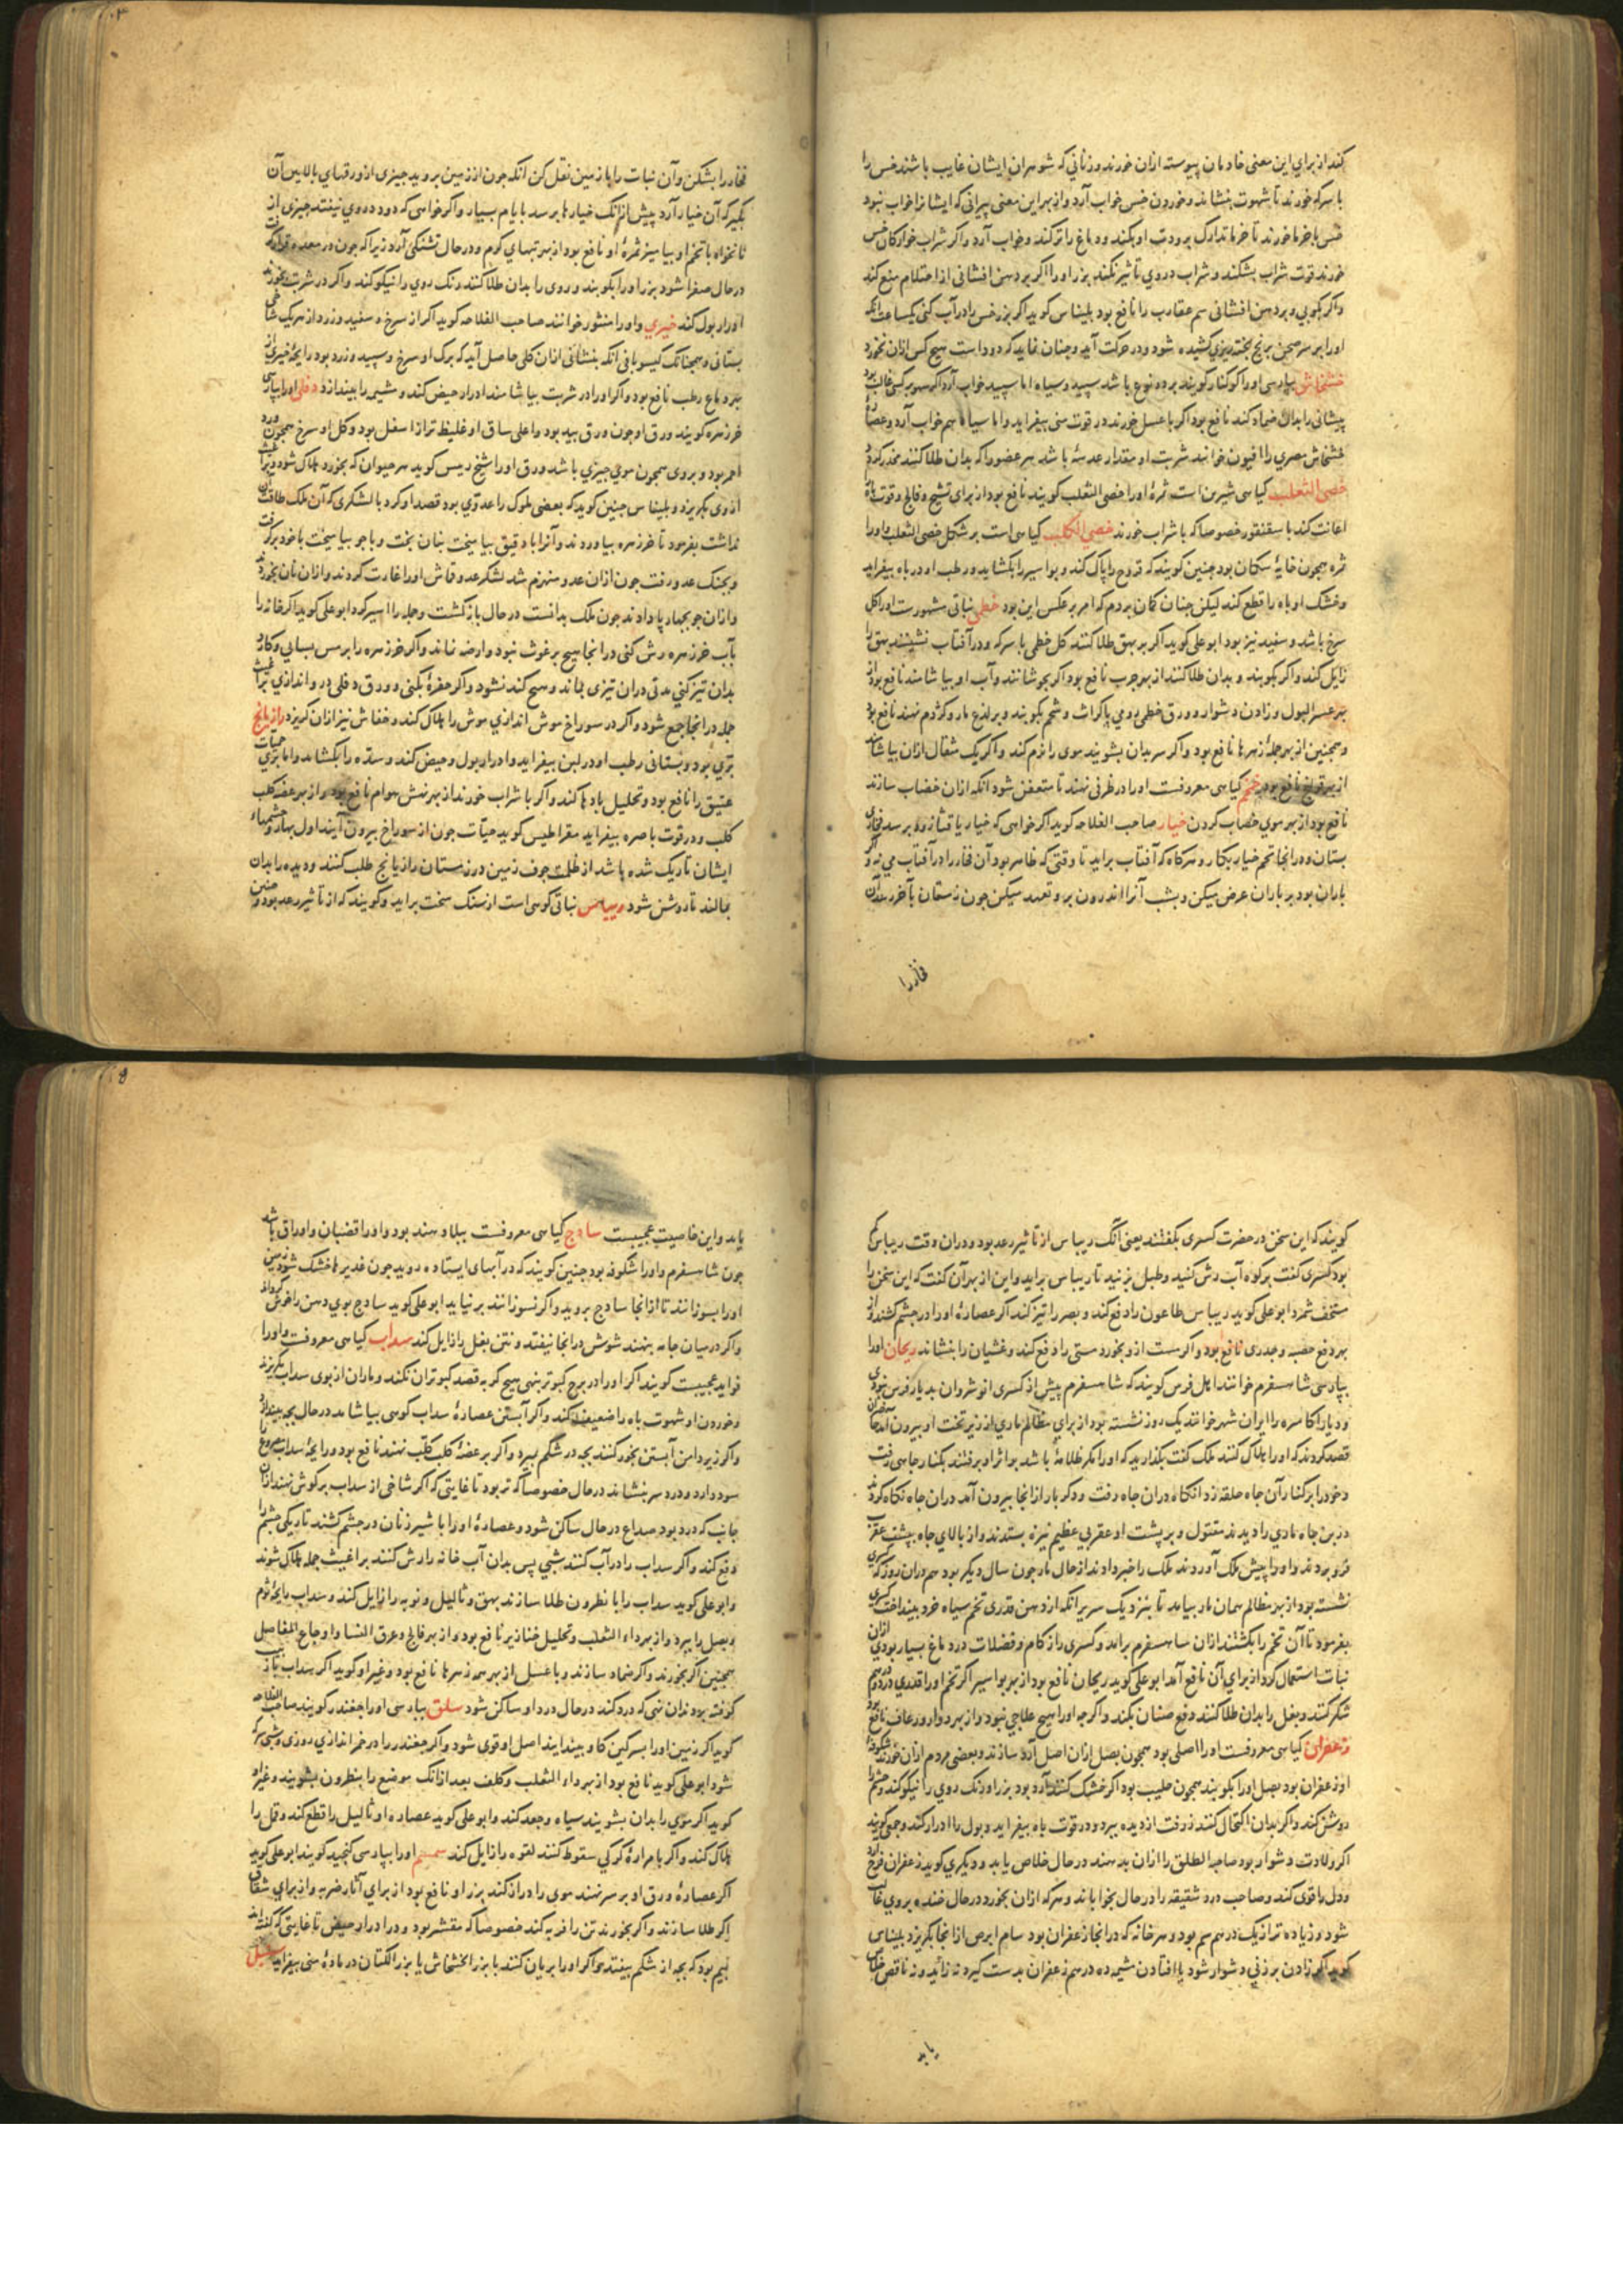 کند از برای این معنی خادمان پیوسته ازان خورند و زنانی که شوهران ایشان غایب باشند خس را
با سرکه خورند تا شهوت بنشاند و خوردن خس خواب آرد و از بهر این معنی پیرانی که ایشانرا خواب نبود
خس با خرما خورند تا خرما تدارک برودت او بکند و دماغ را تر کند و خواب آرد و اکر شراب خوارکان خس
خورند قوت شراب بشکند و شراب در وی تاثیر نکند بزر او را اکر بر دهن افشانی از احتلام منع کند
و اکر بکوبی و بر دهن افشانی سم عقارب را نافع بود بلیناس کوید اکر بزر خس را در آب کنی یکساعت انکه
او را بر سر صحن برنج پخته ریزی کشیده شود و در حرکت آید و چنان نماید که دود است هیچ کس ازان نخورد
خشخاش بپارسی او را کوکنار کویند بر دو نوع باشد سپید و سیاه اما سپید خواب آرد اکر سهر بر کسی غالب بود
پیشانی را بدان ضماد کند نافع بود اکر با عسل خورند در قوت منی بیفزاید و اما سیاه هم خواب آرد و عصاره
خشخاش مصری را افیون خوانند شربت او مقدار عدسهٔ باشد هر عضو را که بدان طلا کنند مخدر کردد
خصی الثعلب کیاهی شیرین است ثمرهٔ او را خصی الثعلب کویند نافع بود از برای تشنج و فالج و قوت باه
اعانت کند با سقنقور خصوصا که با شراب خورند خصی الکلب کیاهی است بر شکل خصی الثعلب و او را
ثمره همچون خایهٔ سکان بود چنین کویند که قروح را پاک کند و بواسیر را بکشاید و رطب او در باه بیفزاید
و خشک او باه را قطع کند لیکن چنان کمان بردم که امر بر عکس این بود خطمی نباتی مشهورست او را کل
سرخ باشد و سفید نیز بود ابو علی کوید اکر بر بهق طلا کنند کل خطمی با سرکه و در آفتاب نشینند بهق را
زایل کند و اکر بکوبند و بدان طلا کنند از بهر جرب نافع بود اکر بجوشانند و آب او بیاشامند نافع بود از
بهر عسر البول و زادن دشوار و ورق خطمی رومی با کراث و شحم بکوبند و بر لذع مار و کژدم نهند نافع بود
و همچنین از بهر جملهٔ زهرها نافع بود و اکر سر بدان بشویند موی را نرم کند و اکر یک مثقال ازان بیاشامند
از بهر قولنج نافع بود خمخم کیاهی معروفست او را در ظرفی نهند تا متعفن شود انکه ازان خضاب سازند
نافع بود از بهر موی خضاب کردن خیار صاحب الفلاحه کوید اکر خواهی که خیار یا قثا زود برسد فخاری
بستان و در انجا تخم خیار بکار و هرکاه که آفتاب براید تا وقتی که ظاهر بود آن فخار را در آفتاب می نه و اکر
باران بود بر باران عرض میکن و بشب آنرا اندرون بر و تعهد میکن چون زمستان بآخر رسد آن
فخار را
فخار را بشکن و آن نبات را با زمین نقل کن انکه چون از زمین بروید چیزی از ورقهای بالایین آن
بکیر که آن خیار آرد پیش ازانک خیارها برسد بایام بسیار و اکر خواهی که دود در وی نیفتد چیزی از
نانخواه با تخم او بیامیز ثمرهٔ او نافع بود از بهر تبهای کرم و در حال تشنکی آرد زیرا که چون در معده قرار کرفت
در حال صفرا شود بزر او را بکوبند و روی را بدان طلا کنند رنک روی را نیکو کند و اکر در شربت بخورند
ادرار بول کند خیری و او را منثور خوانند صاحب الفلاحه کوید اکر از سرخ و سفید و زرد از هر یک شاخی
بستانی و همچنانک کیسو بافی انکه بنشانی ازان کلی حاصل آید که برک او سرخ و سپید و زرد بود رایحهٔ خیری از
بهر دماغ رطب نافع بود و اکر او را در شربت بیاشامند ادرار حیض کند و مشیمه را بیندازد دفلی او را بپارسی
خرزهره کویند ورق او چون ورق بید بود و اعلی ساق او غلیظ تر از اسفل بود و کل او سرخ همچون ورد
احمر بود و بر وی همچون موی چیزی باشد ورق او را شیخ رییس کوید هر حیوان که بخورد هلاک شود و براغیث
از وی بکریزد و بلیناس چنین کوید که بعضی ملوک را عدوی بود قصد او کرد با لشکری که آن ملک طاقت آن
نداشت بفرمود تا خرزهره بیاوردند و آنرا با دقیق بیامیخت بنان پخت و با جو بیامیخت با خود برکرفت
و بجنک عدو رفت چون ازان عدو منهزم شد لشکر عدو قماش او را غارت کردند و ازان نان بخوردند
و ازان جو بچهارپا دادند چون ملک بدانست در حال بازکشت و جمله را اسیر کرد ابو علی کوید اکر خانه را
بآب خرزهره رش کنی در انجا هیچ برغوث نبود و ارضه نماند و اکر خرزهره را بر مس بسایی و کارد
بدان تیز کنی مدتی دران تیزی بماند و هیچ کند نشود و اکر حفرهٔ بکنی و ورق دفلی در و اندازی براغیث
جمله در انجا جمع شود و اکر در سوراخ موش اندازی موش را هلاک کند و خفاش نیز ازان کریزد رازیانج
بری بود و بستانی رطب او در لبن بیفزاید و ادرار بول و حیض کند و سده را بکشاید و اما بری حمیات
عتیق را نافع بود و تحلیل بادها کند و اکر با شراب خورند از بهر نهش هوام نافع بود و از بهر عضه کلب
کلب و در قوت باصره بیفزاید مقراطیس کوید حیات چون از سوراخ بیرون آیند اول بهار و چشمهاء
ایشان تاریک شده باشد از ظلمت جوف زمین در زمستان رازیانج طلب کنند و دیده را بدان
بمالند تا روشن شود ریباس نباتی کوهی است از سنک سخت براید و کویند که از تاثیر رعد بود و چنین
کویند که این سخن در حضرت کسری بکفتند یعنی آنک ریباس از تاثیر رعد بود و دران وقت ریباس کم
بود کسری کفت بر کوه آب رش کنید و طبل بزنید تا ریباس براید و این از بهر آن کفت که این سخن را
سخف شمرد ابو علی کوید ریباس طاعون را دفع کند و بصر را تیز کند اکر عصارهٔ او را در چشم کشند از
بهر دفع حصبه و جدری نافع بود و اکر مست ازو بخورد مستی را دفع کند و غشیان را بنشاند ریحان او را
بپارسی شاهسفرم خوانند اهل فرس کویند که شاهسفرم پیش از کسری انوشروان بدیار فرس نبودی
و دیار اکاسره را ایران شهر خوانند یک روز نشسته بود از برای مظالم ماری از زیر تخت او بیرون آمد حاضران
قصد کردند که او را هلاک کنند ملک کفت بکذارید که او را مکر ظلامهٔ باشد بر اثر او برفتند بکنار چاهی رفت
و خود را بر کنار آن چاه حلقه زد انکاه دران چاه رفت و دکر بار از انجا بیرون آمد دران چاه نکاه کردند
در بن چاه ماری را دیدند مقتول و بر پشت او عقربی عظیم نیزه بستدند و از بالای چاه بپشت عقرب
فرو بردند و او را پیش ملک آوردند ملک را خبر دادند از حال مار چون سال دیکر بود هم دران روز که کسری
نشسته بود از بهر مظالم همان مار بیامد تا بنزدیک سریر انکه از دهن قدری تخم سیاه خرد بینداخت کسری
بفرمود تا آن تخم را بکشتند ازان شاهسفرم براید و کسری را زکام و فضلات در دماغ بسیار بودی ازان
نبات استعمال کرد از برای آن نافع آمد ابو علی کوید ریحان نافع بود از بهر بواسیر اکر تخم او را قدری دو درم
شکر کنند و بغل را بدان طلا کنند دفع صنان بکند و اکرچه او را هیچ علاجی نبود و از بهر دوار و رعاف نافع بود
زعفران کیاهی معروفست او را اصلی بود همچون بصل ازان اصل آرد سازند و بعضی مردم ازان خورند شکوفهٔ
او زعفران بود بصل او را بکوبند همچون حلیب بود اکر خشک کنند آرد بود بزر او رنک روی را نیکو کند و چشم را
روشن کند و اکر بدان اکتحال کنند زرقت از دیده ببرد و در قوت باه بیفزاید و بول را ادرار کند و جمعی کویند
اکر ولادت دشوار بود صاحبة الطلق را ازان بدهند در حال خلاص یابد و دیکری کوید زعفران فرح آرد
و دل را قوی کند و صاحب درد شقیقه را در حال بخواباند و هرکه ازان بخورد در حال خنده بر وی غالب
شود و زیاده تر از یک درهم سم بود و هر خانه که در انجا زعفران بود سام ابرص از انجا بکریزد بلیناس
کوید اکر زادن بر زنی دشوار شود یا افتادن مشیمه ده درهم زعفران بدست کیرد نه زائد و نه ناقص خلاص
یابد
یابد و این خاصیت عجیبست ساذج کیاهی معروفست ببلاد هند بود و او را قضبان و اوراق باشد
چون شاهسفرم و او را شکوفه بود چنین کویند که در آبهای ایستاده روید چون غدیرها خشک شود زمین
او را بسوزانند تا از انجا ساذج بروید و اکر نسوزانند بر نیاید ابو علی کوید ساذج بوی دهن را خوش کرداند
و اکر در میان جامه بنهند شوش در انجا نیفتد و نتن بغل را زایل کند سداب کیاهی معروفست و او را
فواید عجیبست کویند اکر او را در برج کبوتر بنهی هیچ کربه قصد کبوتران نکند و ماران از بوی سداب بکریزند
و خوردن او شهوت باه را ضعیف کند و اکر آبستن عصارهٔ سداب کوهی بیاشامد در حال بچه بیندازد
و اکر زیر دامن آبستن بخور کنند بچه در شکم بمیرد و اکر بر عضهٔ کلب کلب نهند نافع بود و رایحهٔ سداب مصروع را
سود دارد و درد سر بنشاند در حال خصوصا که تر بود تا غایتی که اکر شاخی از سداب بر کوش نهند ازان
جانب که درد بود صداع در حال ساکن شود و عصارهٔ او را با شیر زنان در چشم کشند تاریکی چشم را
دفع کند و اکر سداب را در آب کنند شبی پس بدان آب خانه را رش کنند براغیث جمله هلاک شوند
و ابو علی کوید سداب را با نطرون طلا سازند بهق و ثالیل و توبه را زایل کند و سداب رایحهٔ ثوم
و بصل را ببرد و از بهر داء الثعلب و تحلیل خنازیر نافع بود و از بهر فالج و عرق النسا و اوجاع المفاصل
همچنین اکر بخورند و اکر ضماد سازند و با عسل از بهر همه زهرها نافع بود و غیر او کوید اکر سداب با زیت
کوفته بر دندان نهی که درد کند در حال درد او ساکن شود سلق بپارسی او را چغندر کویند صاحب الفلاحه
کوید اکر زمین او را بسرکین کاو بیندایند اصل او قوی شود و اکر چغندر را در خمر اندازی دوزی و شبی سرکه
شود ابو علی کوید نافع بود از بهر داء الثعلب و کلف بعد ازانک موضع را بنطرون بشویند و غیر او
کوید اکر موی را بدان بشویند سیاه و جعد کند و ابو علی کوید عصاره او ثالیل را قطع کند و قمل را
هلاک کند و اکر با مرارهٔ کرکی سقوط کنند لقوه را زایل کند سمسم او را بپارسی کنجید کویند ابو علی کوید
اکر عصارهٔ ورق او بر سر نهند موی را دراز کند بزر او نافع بود از برای آثار ضربه و از برای شقاق
اکر طلا سازند و اکر بخورند تن را فربه کند خصوصا که مقشر بود و در ادرار حیض تا غایتی که کفته اند
بیم بود که بچه از شکم بیفتد و اکر او را بریان کنند با بزر الخشخاش یا بزر الکتان در مادهٔ منی بیفزاید سنبل